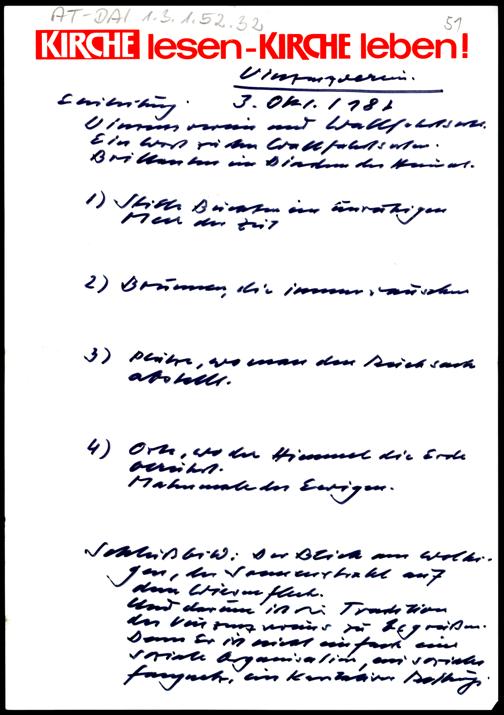 AT-DAI 1.3.1.52.32
51
KIRCHE lesen-KIRCHE leben!
Vinzenzverein.
Einleitung. 3. Okt. 198
Vinzenzverein und Wallfahrtsorte.
Ein Wort zu den Wallfahrtsorten.
Brillanten im Diadem der Heimat.
1) Stille Buchten im unruhigen
Meer der Zeit
2) Brunnen, die immer rauschen
3) Plätze, wo man den Rucksack
abstellt.
4) Orte, wo der Himmel die Erde
berührt.
Mahnmale des Ewigen.
Schlußbild: Der Blick am Wolki-
gen, der Sonnenstrahl auf
dem Wiesenfleck.
Und darum ist die Tradition
des Vinzenzvereins zu begrüßen.
Denn Er ist nicht einfach eine
soziale Organisation, ein soziales
, ein